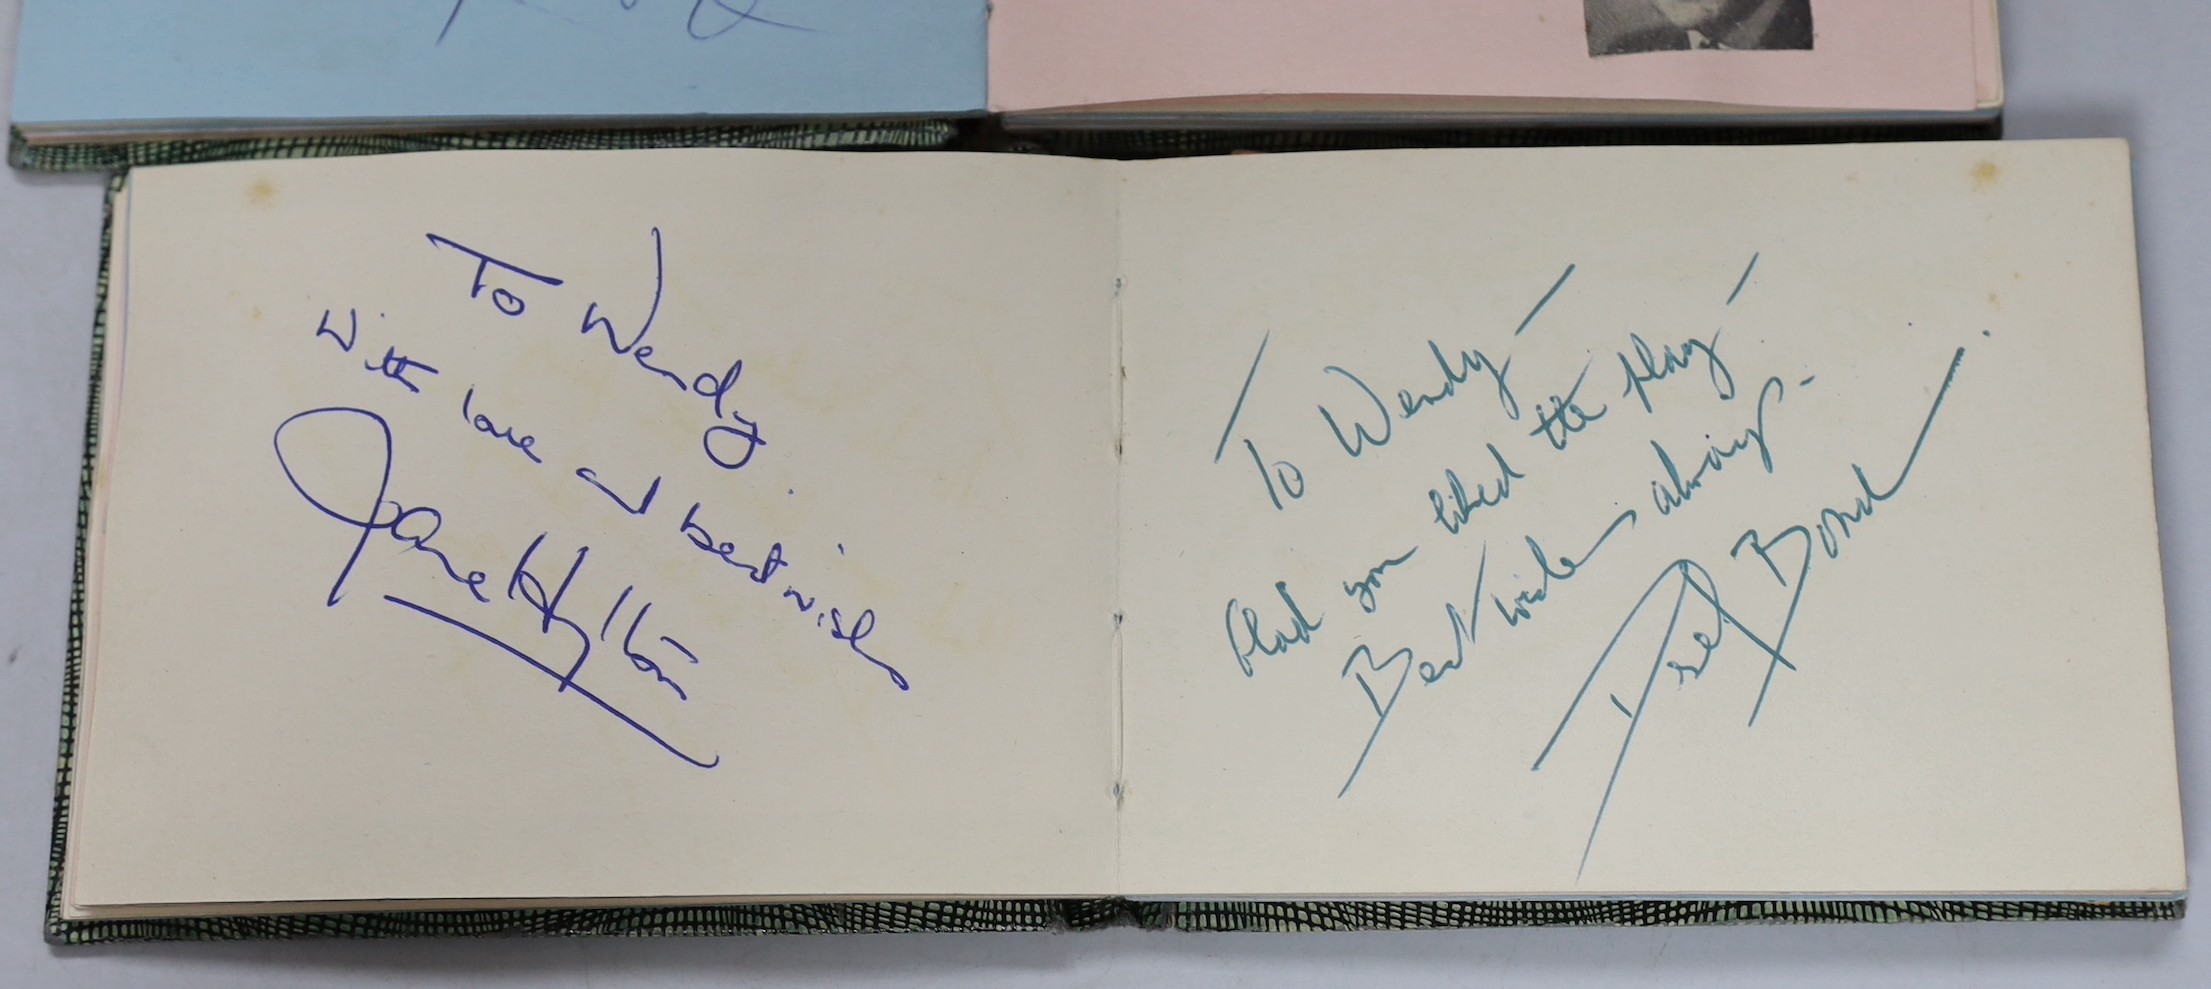 To Wendy
With love and best wishes
Jane Hylton
To Wendy -
Glad you liked the play -
Best wishes always -
Derek Bond.